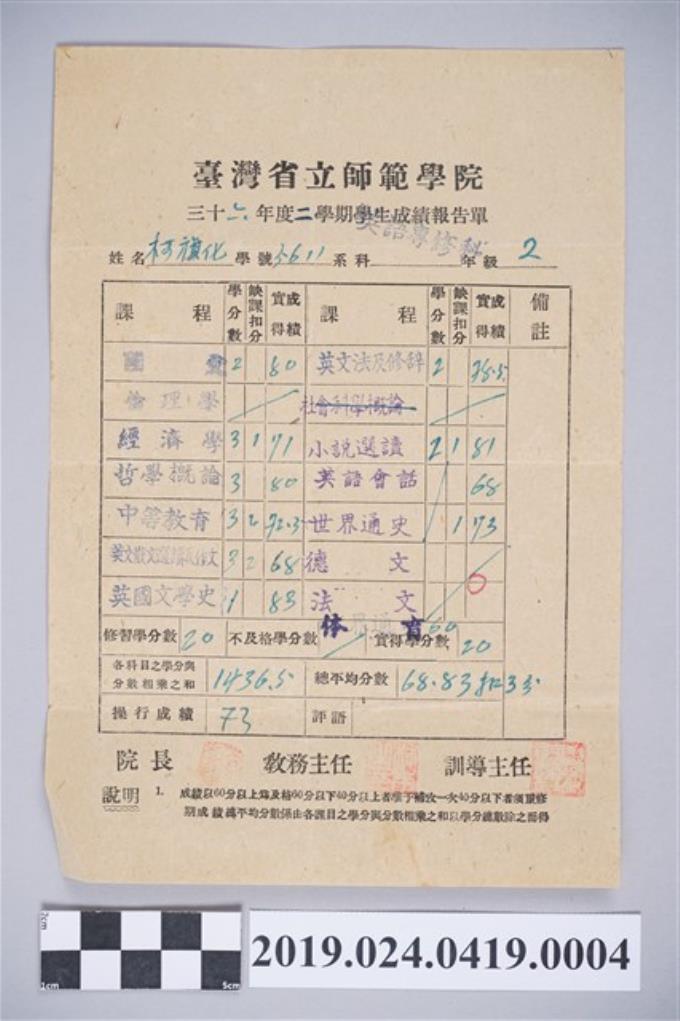 臺灣省立師範學院
三十六年度二學期學生成績報告單
姓名 柯旗化 學號 3611 系科 英語專修科 年級 2
課程 學分數 缺課扣分 實得成績 課程 學分數 缺課扣分 實得成績 備註
2 80 英文法及修辞 2 78.5
倫理學 社會科學概論
經濟學 3 1 71 小說選讀 2 1 81
哲學概論 3 80 英語會話 68
中等教育 3 2 72.5 世界通史 1 73
3 2 68 德文
英國文學史 1 83 法文
體育 60
修習學分數 20 不及格學分數 實得學分數 20
各科目之學分與分數相乘之和 1436.5 總平均分數 68.83
操行成績 73 評語
院長 教務主任 訓導主任
說明 1. 成績以60分以上為及格60分以下40分以上者準予補攷一次40分以下者須重修
期成績總平均分數係由各課目之學分與分數相乘之和以學分總數除之而得
2cm
1cm 5cm
2019.024.0419.0004